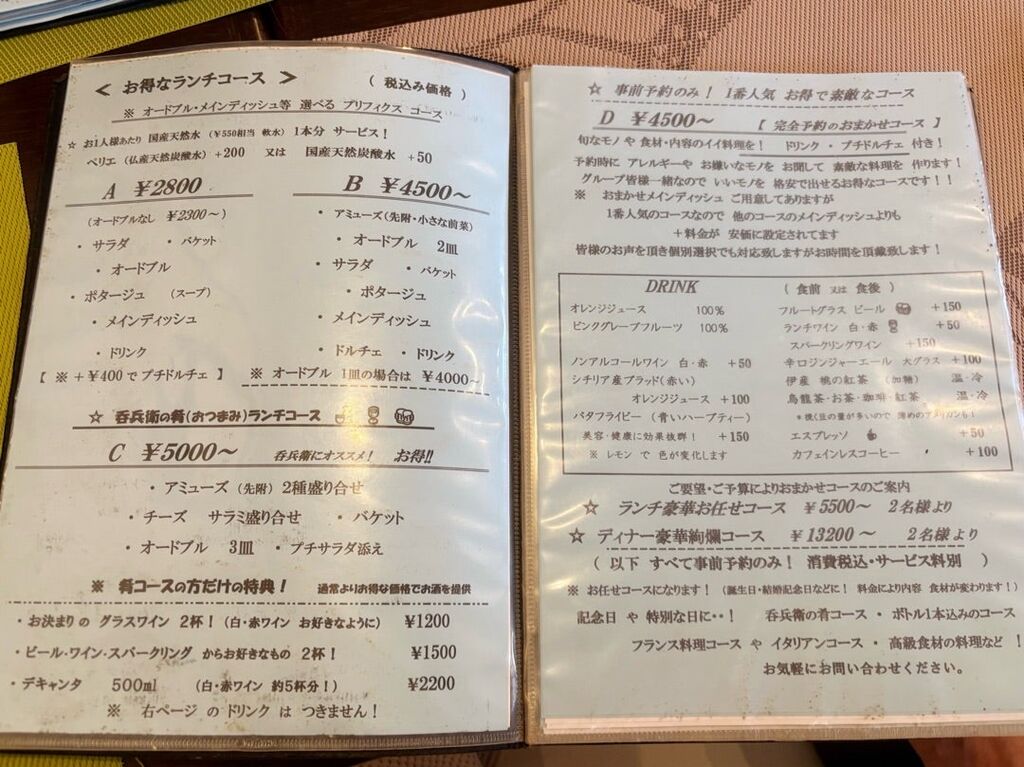 < お得なランチコース >
( 税込み価格 )
※ オードブル・メインディッシュ等 選べる プリフィクス コース
☆ お1人様あたり 国産天然水 (¥550相当 軟水) 1本分 サービス!
ペリエ (仏産天然炭酸水) +200 又は 国産天然炭酸水 +50
A ¥2800
(オードブルなし ¥2300~)
・サラダ ・バケット
・オードブル
・ポタージュ (スープ)
・メインディッシュ
・ドリンク
【 ※ +¥400で プチドルチェ 】
B ¥4500~
・アミューズ(先附・小さな前菜)
・オードブル 2皿
・サラダ ・バケット
・ポタージュ
・メインディッシュ
・ドルチェ ・ドリンク
※ オードブル 1皿の場合は ¥4000~
☆ 呑兵衛の肴(おつまみ)ランチコース
C ¥5000~ 呑兵衛にオススメ! お得!!
・アミューズ (先附) 2種盛り合せ
・チーズ サラミ盛り合せ ・バケット
・オードブル 3皿 ・プチサラダ添え
※ 肴コースの方だけの特典! 通常よりお得な価格でお酒を提供
・お決まりの グラスワイン 2杯! (白・赤ワイン お好きなように) ¥1200
・ビール・ワイン・スパークリング からお好きなもの 2杯! ¥1500
・デキャンタ 500ml (白・赤ワイン 約5杯分!) ¥2200
※ 右ページ の ドリンク は つきません!
☆ 事前予約のみ! 1番人気 お得で素敵なコース
D ¥4500~ 【 完全予約のおまかせコース 】
旬なモノや 食材・内容のイイ料理を! ドリンク・プチドルチェ 付き!
予約時に アレルギーや お嫌いなモノを お聞して 素敵な料理を 作ります!
グループ皆様一緒なので いいモノを 格安で出せるお得なコースです!!
※ おまかせメインディッシュ ご用意してありますが
1番人気のコースなので 他のコースのメインディッシュよりも
+料金が 安価に設定されてます
皆様のお声を頂き個別選択でも対応致しますがお時間を頂戴致します!
DRINK ( 食前 又は 食後 )
オレンジジュース 100%
ピンクグレープフルーツ 100%
ノンアルコールワイン 白・赤 +50
シチリア産ブラッド(赤い)
オレンジジュース +100
バタフライピー (青いハーブティー)
美容・健康に効果抜群! +150
※ レモン で 色が変化します
フルートグラス ビール +150
ランチワイン 白・赤 +50
スパークリングワイン +150
辛口ジンジャーエール 大グラス +100
伊産 桃の紅茶 (加糖) 温・冷
烏龍茶・お茶・珈琲・紅茶 温・冷
*挽く豆の量が多いので 薄めのアメリカンも!
エスプレッソ +50
カフェインレスコーヒー +100
ご要望・ご予算によりおまかせコースのご案内
☆ ランチ豪華お任せコース ¥5500~ 2名様より
☆ ディナー豪華絢爛コース ¥13200~ 2名様より
( 以下 すべて事前予約のみ! 消費税込・サービス料別 )
※ お任せコースになります! (誕生日・結婚記念日などに! 料金により内容 食材が変わります!)
記念日 や 特別な日に・・! 呑兵衛の肴コース ・ ボトル1本込みのコース
フランス料理コース や イタリアンコース ・ 高級食材の料理など !
お気軽にお問い合わせください。